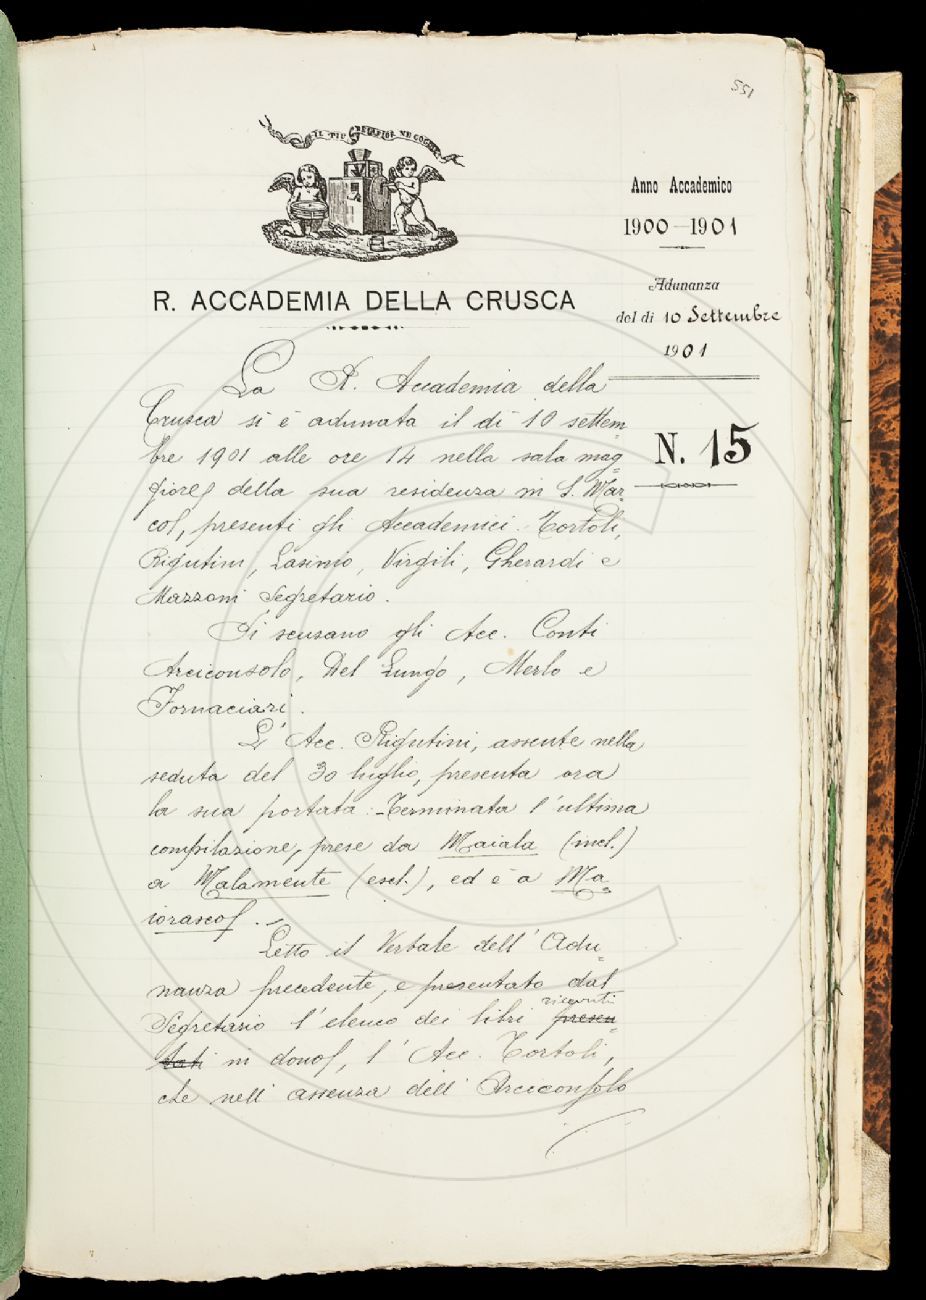 551
IL PIÙ BEL FIOR NE COGLIE
Anno Accademico
1900-1901
R. ACCADEMIA DELLA CRUSCA
Adunanza
del dì 10 Settembre
1901
N. 15
La R. Accademia della
Crusca si è adunata il dì 10 settem=
bre 1901 alle ore 14 nella sala mag=
giore della sua residenza in S. Mar=
co, presenti gli Accademici Tortoli,
Rigutini, Lasinio, Virgili, Gherardi e
Mazzoni Segretario.
Si scusano gli Acc. Conti
Arciconsolo, Del Lungo, Merlo e
Fornaciari.
L'Acc. Rigutini, assente nella
seduta del 30 luglio, presenta ora
la sua portata: Terminata l'ultima
compilazione, prese da Maiala (incl.)
a Malamente (escl.), ed è a Ma=
iorasco. -
Letto il Verbale dell'Adu=
nanza precedente, e presentato dal
Segretario l'elenco dei libri presen= ricevuti
tati in dono, l'Acc. Tortoli,
che nell'assenza dell'Arciconsolo